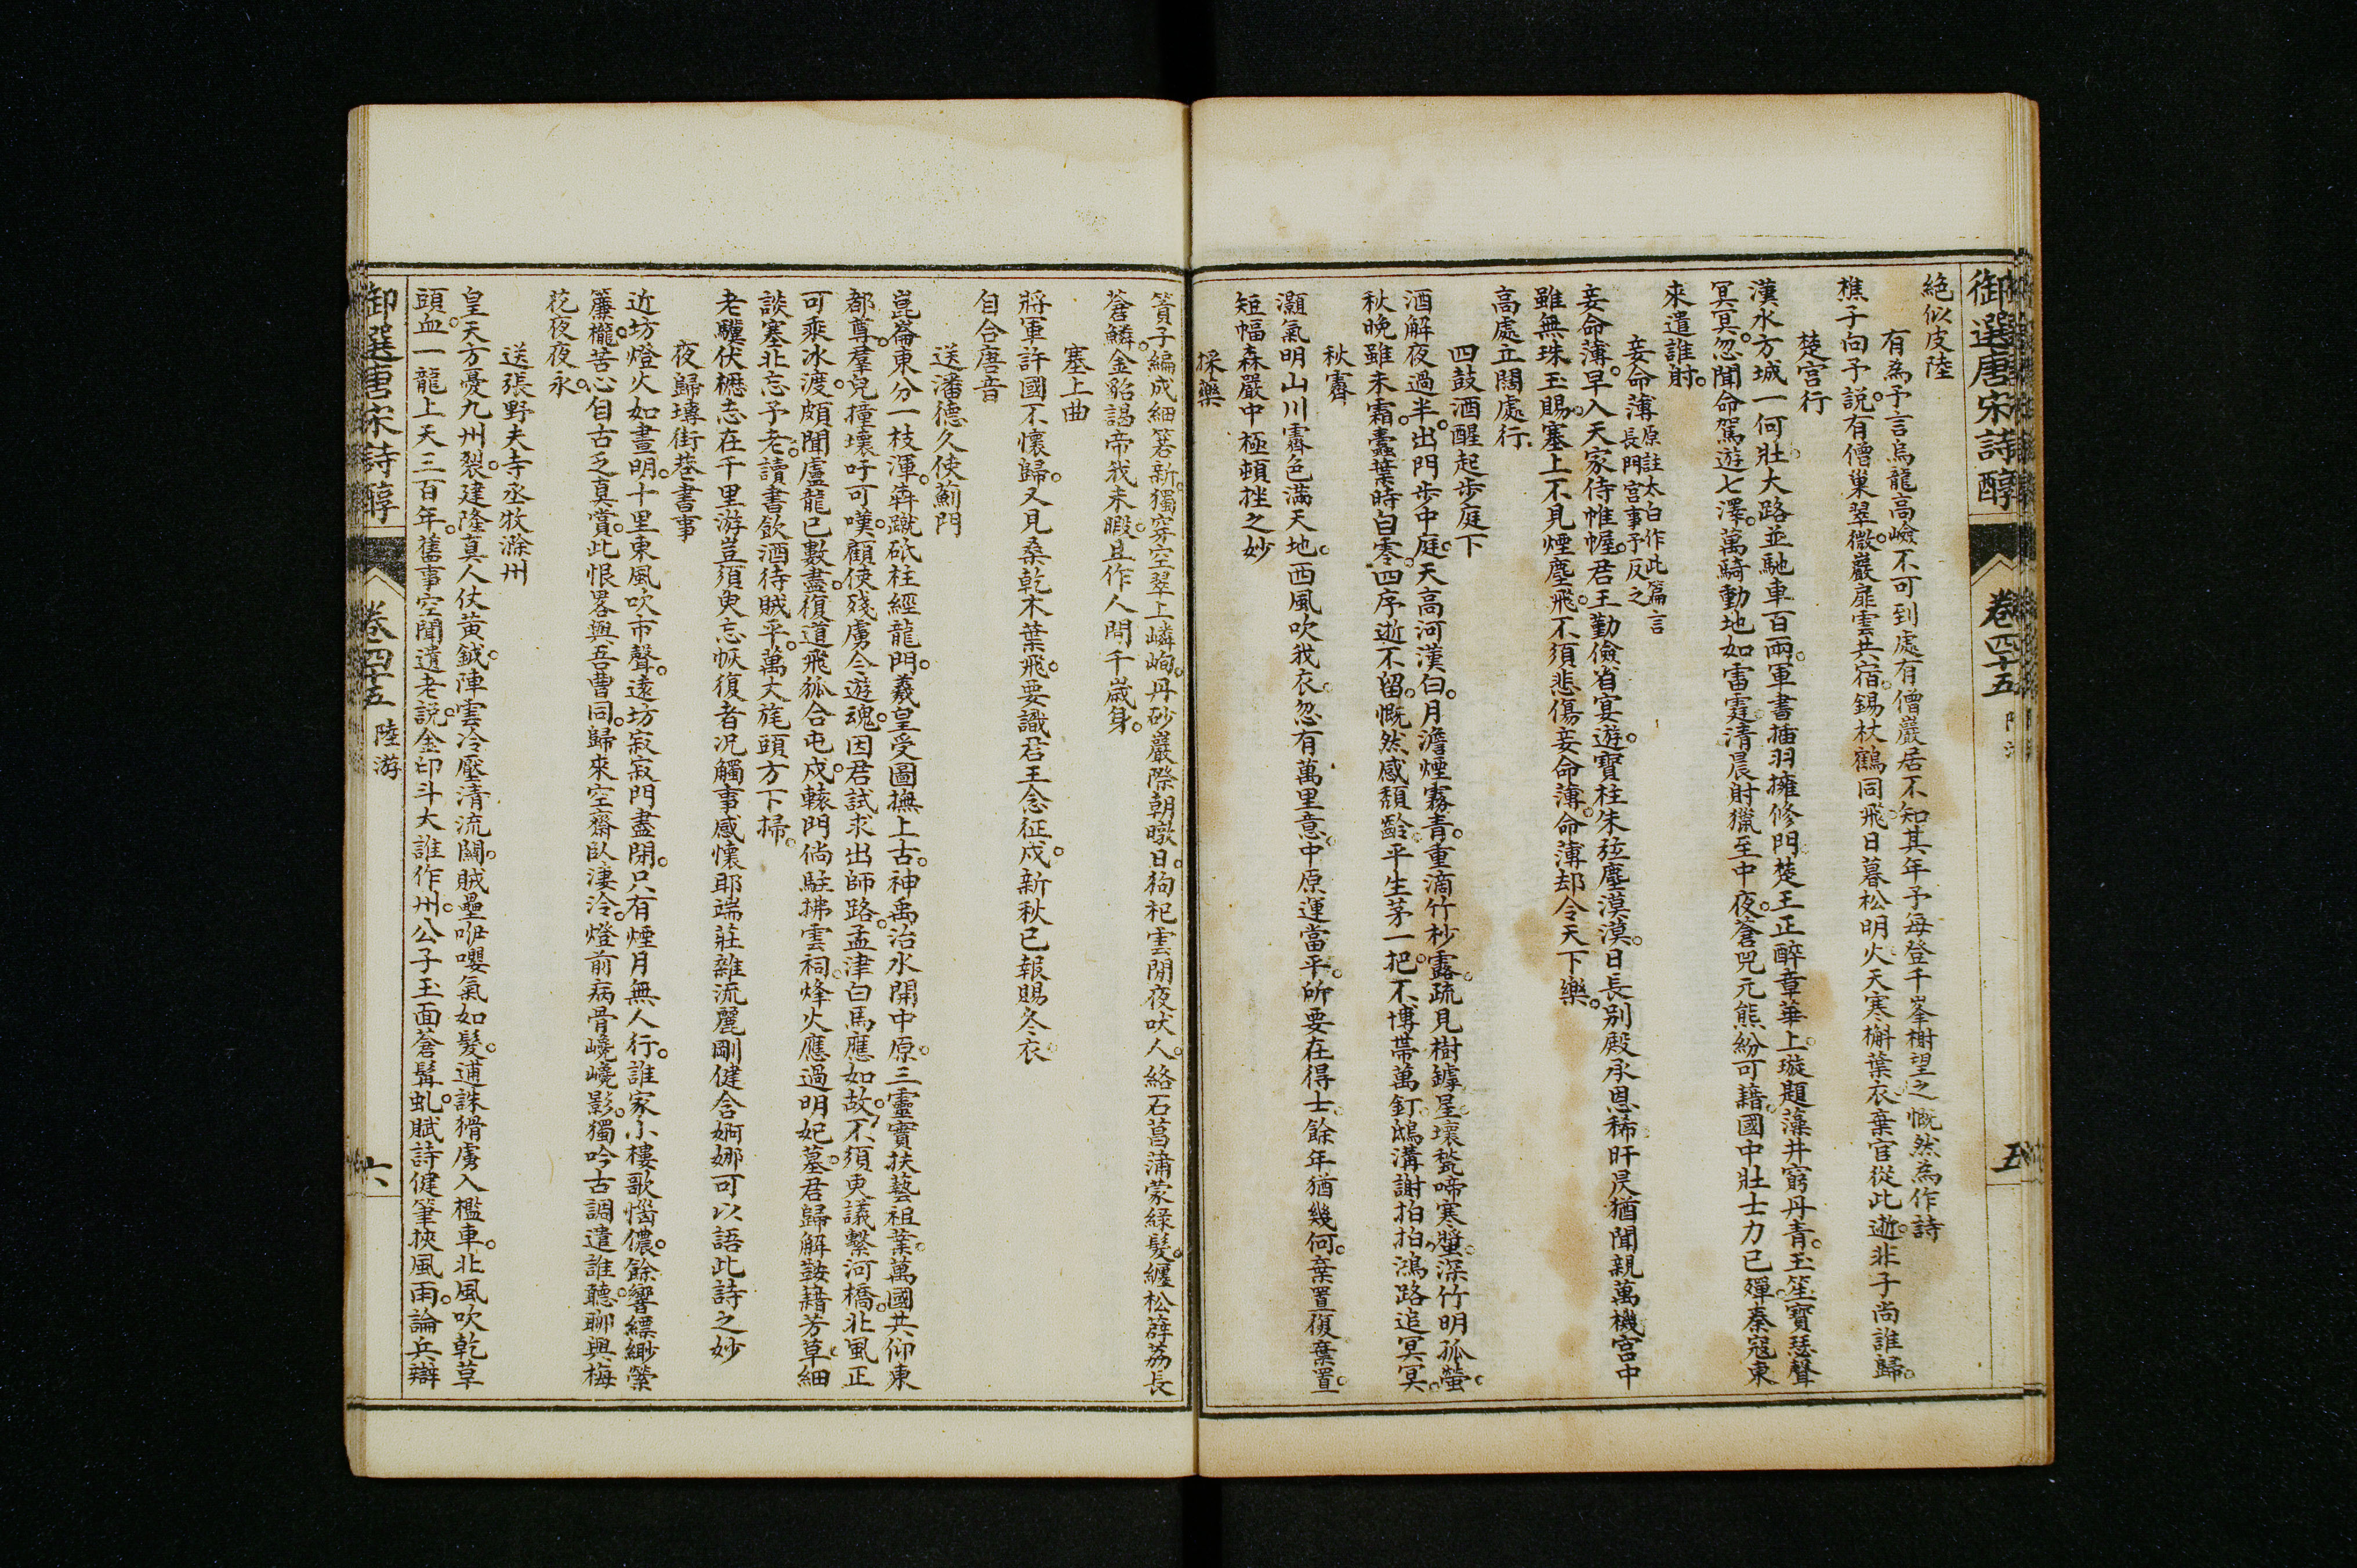 御選唐宋詩醇 卷四十五 五
絶似皮陸
有為予言烏龍高嶮不可到處有僧巖居不知其年予每登千峯榭望之慨然為作詩
樵子向予説有僧巢翠微巖扉雲共宿錫杖鶴同飛日暮松明火天寒槲葉衣棄官從此逝非子尚誰歸
楚宫行
漢水方城一何壯大路並馳車百兩軍書插羽擁修門楚王正醉章華上璇題藻井窮丹青玉笙寶瑟聲
冥冥忽聞命駕遊七澤萬騎動地如雷霆清晨射獵至中夜蒼兕元熊紛可藉國中壯士力已殫秦寇東
來遣誰射
妾命薄原註太白作此篇言長門宫事予反之
妾命薄早入天家侍帷幄君王勤儉省宴遊寶柱朱弦塵漠漠日長别殿承恩稀旰昃猶聞親萬機宫中
雖無珠玉賜塞上不見煙塵飛不須悲傷妾命薄命薄却令天下樂
高處立闊處行
四鼓酒醒起步庭下
酒解夜過半出門步中庭天高河漢白月澹煙霧青重滴竹杪露疏見樹罅星壞甃啼寒螿深竹明孤螢
秋晚雖未霜蠹葉時自零四序逝不留慨然感頽齡平生茅一把不博帶萬釘鴟溝謝拍拍鴻路追冥冥
秋霽
灝氣明山川霽色滿天地西風吹我衣忽有萬里意中原運當平所要在得士餘年猶幾何棄置復棄置
短幅森嚴中極頓挫之妙
採藥
簣子編成細箬新獨穿空翠上嶙峋丹砂巖際朝暾日狗杞雲間夜吠人絡石菖蒲蒙緑髮纏松薜荔長
蒼鱗金貂謁帝我未暇且作人間千歲身
塞上曲
將軍許國不懷歸又見桑乾木葉飛要識君王念征戍新秋已報賜冬衣
自合唐音
送潘德久使薊門
崑崙東分一枝渾犇蹴砥柱經龍門羲皇受圖撫上古神禹治水開中原三靈實扶藝祖業萬國共仰東
都尊羣兒撞壞吁可嘆顧使殘虜今遊魂因君試求出師路孟津白馬應如故不須更議繫河橋北風正
可乘冰渡頗聞盧龍已數盡復道飛狐合屯戍轅門倘駐拂雲祠烽火應過明妃墓君歸解鼓藉芳草細
談塞北忘予老讀書飲酒待賊平萬大旄頭方下掃
老驥伏櫪志在千里游豈須臾忘恢復者况觸事感懷耶端莊雜流麗剛健含婀娜可以語此詩之妙
夜歸塼街巷書事
近坊燈火如晝明十里東風吹市聲遠坊寂寂門盡閉只有煙月無人行誰家小樓歌惱儂餘響縹緲縈
簾櫳苦心自古乏真賞此恨畧與吾曹同歸來空齋臥淒冷燈前病骨巉巉影獨吟古調遣誰聽聊與梅
花夜夜永
送張野夫寺丞牧滁州
皇天方憂九州裂建隆真人仗黃鉞陣雲冷壓清流關賊壘咿嚶氣如髮逋誅猾虜入檻車北風吹乾草
頭血一龍上天三百年舊事空聞遺老説金印斗大誰作州公子玉面蒼髯虬賦詩健筆挾風雨論兵辯
御選唐宋詩醇 卷四十五 陸游 六